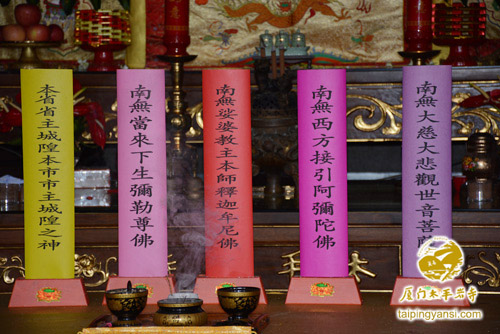 本省省主城隍本市市主城隍之神
南無當來下生彌勒尊佛
南無娑婆教主本師釋迦牟尼佛
南無西方接引阿彌陀佛
南無大慈大悲觀世音菩薩
厦门太平岩寺
taipingyansi.com